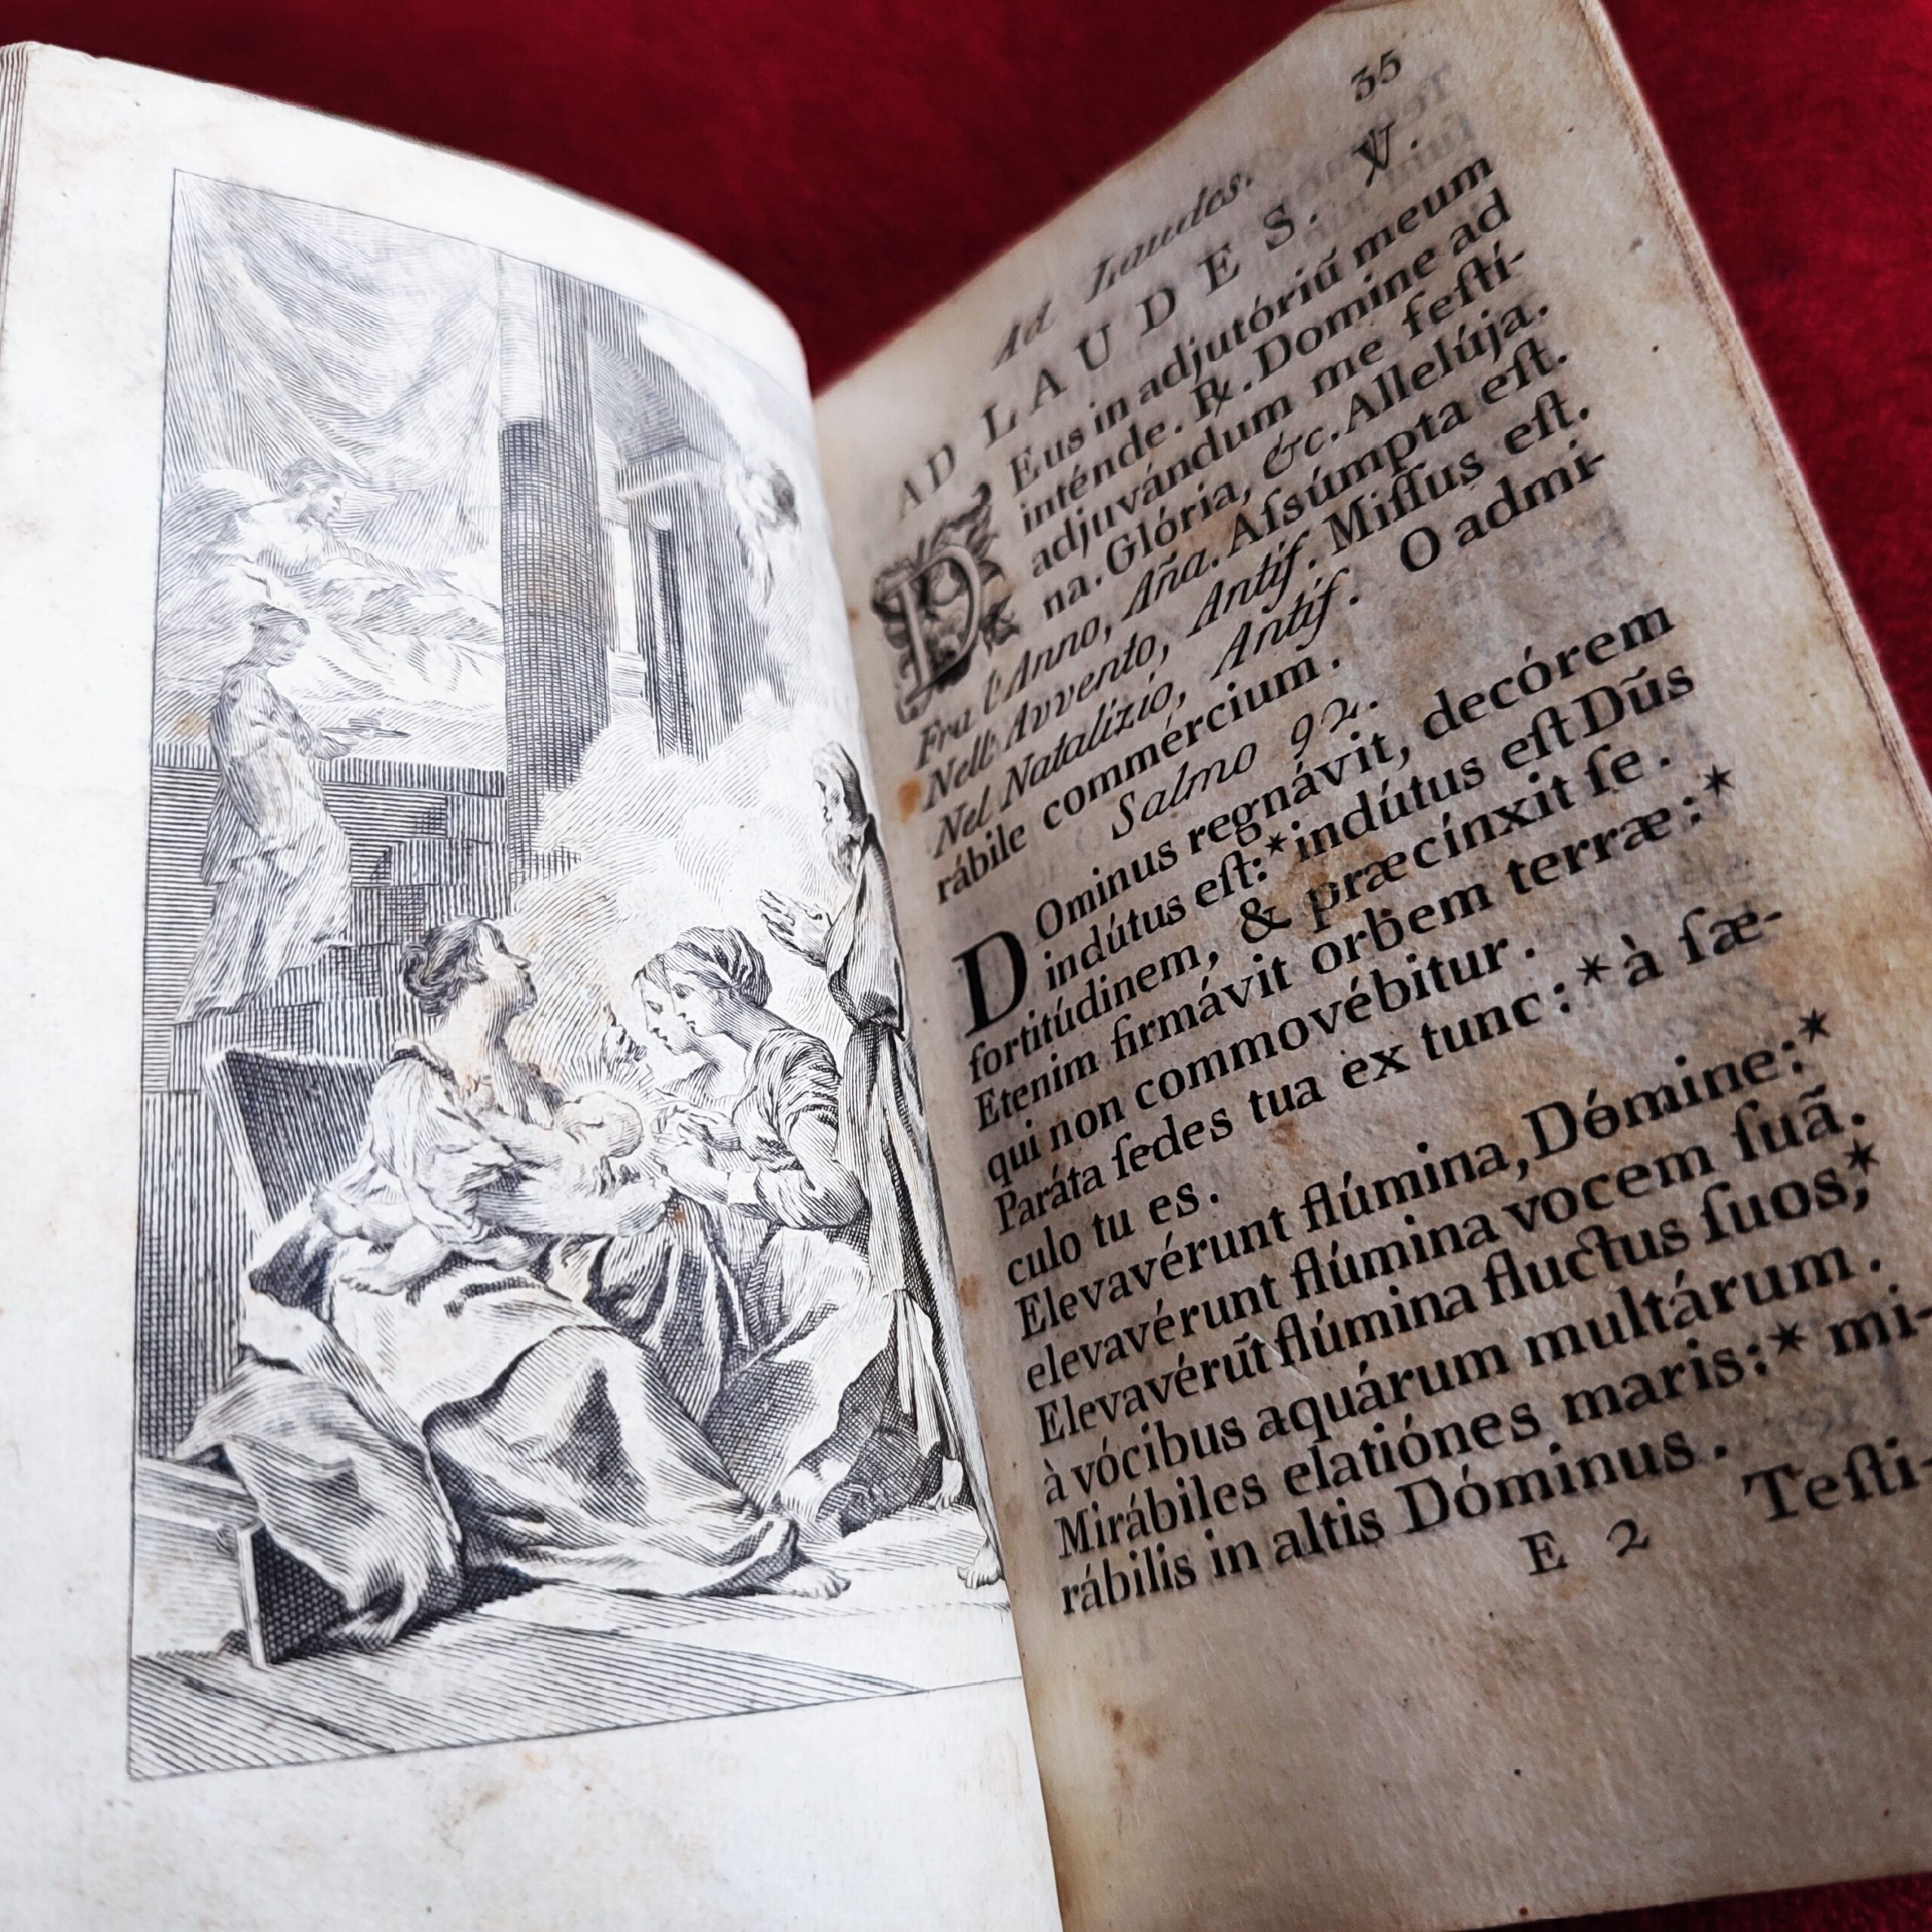 35
Ad Laudes.
AD LAUDES. ℣.
DEus in adjutóriũ meum
inténde. ℟. Domine ad
adjuvándum me feſtí-
na. Glória, &c. Allelúja.
Fra l'Anno, Aña. Aſsúmpta eſt.
Nell'Avvento, Antif. Miſſus eſt.
Nel Natalizio, Antif. O admi-
rábile commércium.
Salmo 92.
DOminus regnávit, decórem
indútus eſt:* indútus eſt Dũs
fortitúdinem, & præcínxit ſe.
Etenim firmávit orbem terræ:*
qui non commovébitur.
Paráta ſedes tua ex tunc:* à ſæ-
culo tu es.
Elevavérunt flúmina, Dómine:*
elevavérunt flúmina vocem ſuã.
Elevavérũt flúmina fluctus ſuos,*
à vócibus aquárum multárum.
Mirábiles elatiónes maris:* mi-
rábilis in altis Dóminus.
E 2 Teſti-